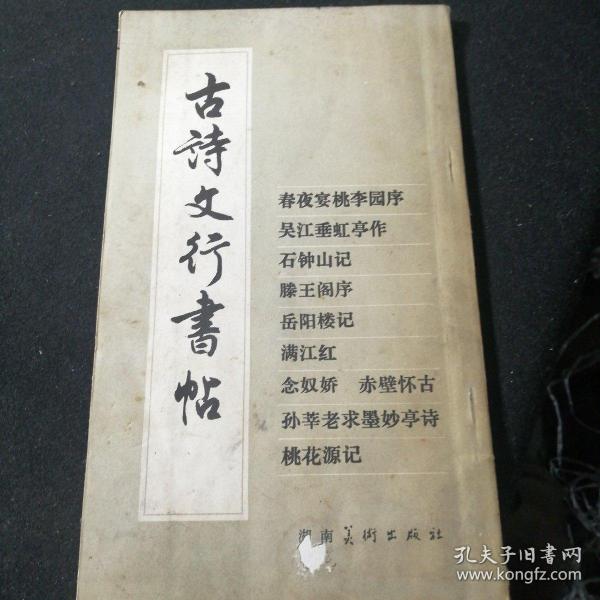 古诗文行書帖
春夜宴桃李园序
吴江垂虹亭作
石钟山记
滕王阁序
岳阳楼记
满江红
念奴娇 赤壁怀古
孙莘老求墨妙亭诗
桃花源记
湖南美術出版社
孔夫子旧書网
www.kongfz.com